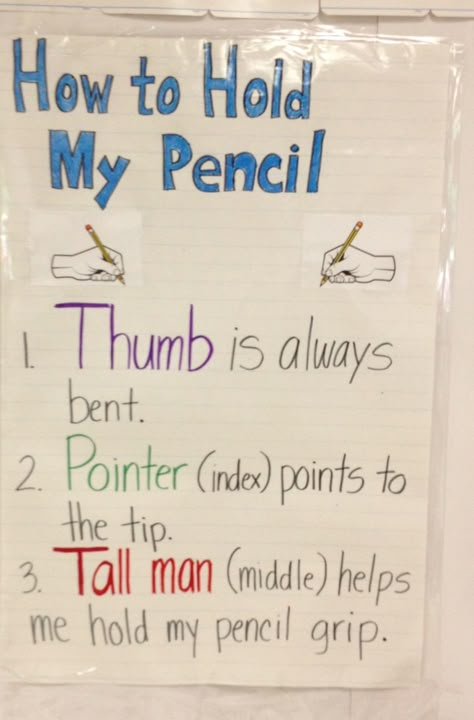 How to Hold
My Pencil
1. Thumb is always
bent.
2. Pointer (index) points to
the tip.
3. Tall man (middle) helps
me hold my pencil grip.